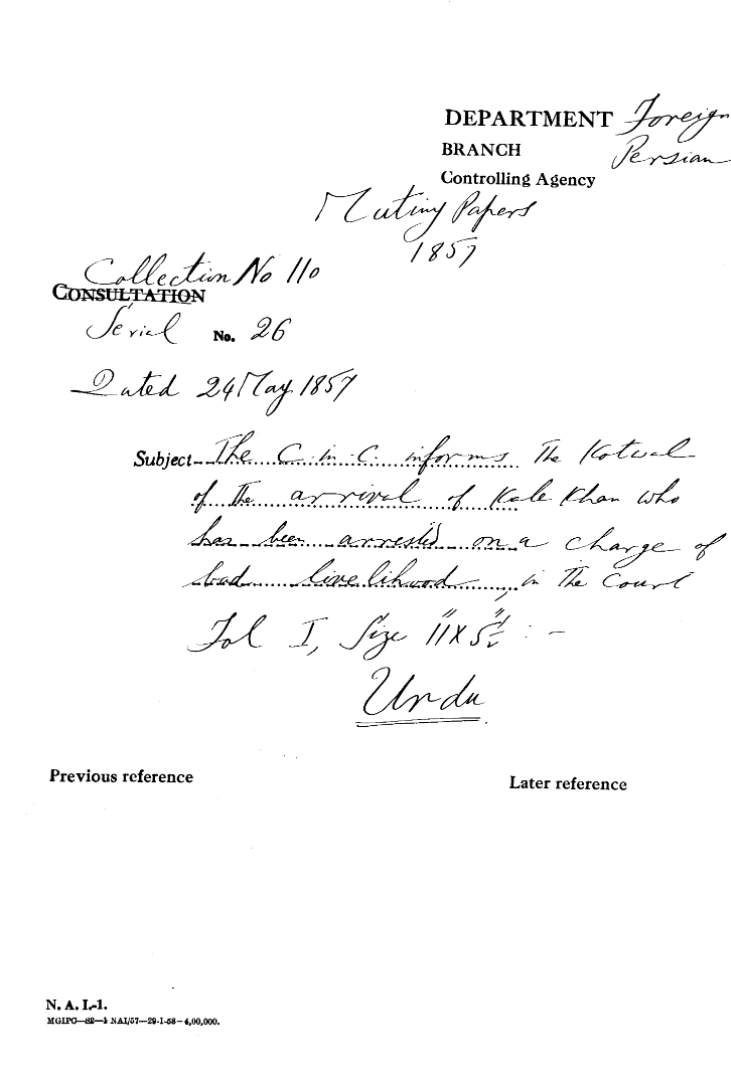 DEPARTMENT Foreign
BRANCH Persian
Controlling Agency
Mutiny Papers
1857
Collection No 110
CONSULTATION
Serial No. 26
Dated 24 May 1857
Subject The C-in-C. informs The Kotwal
of The arrival of Kale Khan who
has been arrested on a charge of
bad livelihood, in The Court
Fol I, Size 11" x 5
Urdu
Previous reference Later reference
N. A. I.-1.
MGIPC—S2—1 NAI/57—29-1-58—4,00,000.